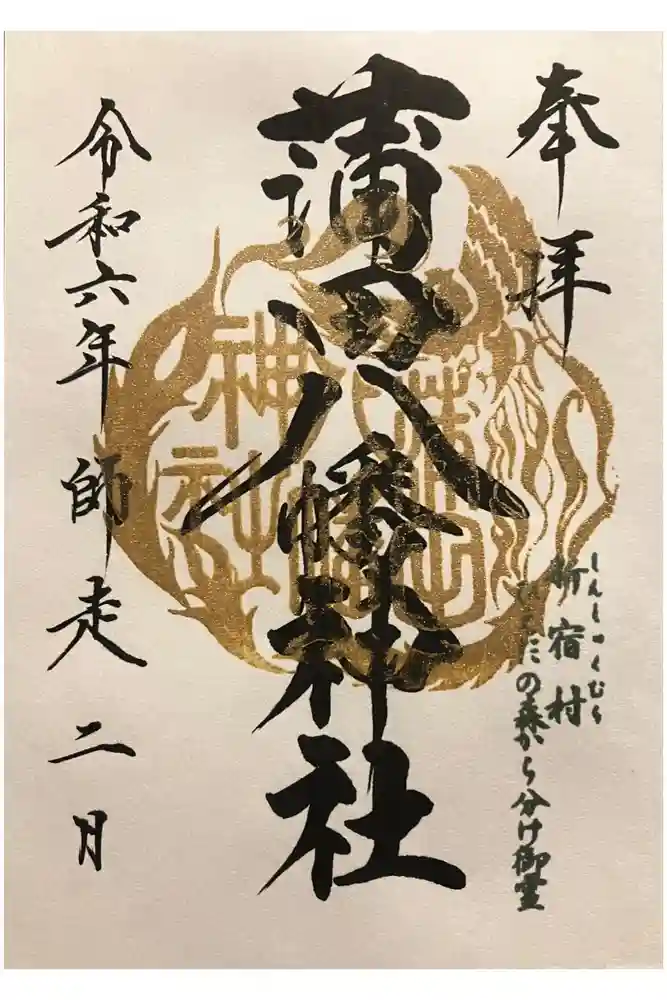 奉拝
しんしゅくむら
新宿村
の森から分け御霊
蒲田八幡神社
蒲田
八幡
神社
令和六年 師走 二月